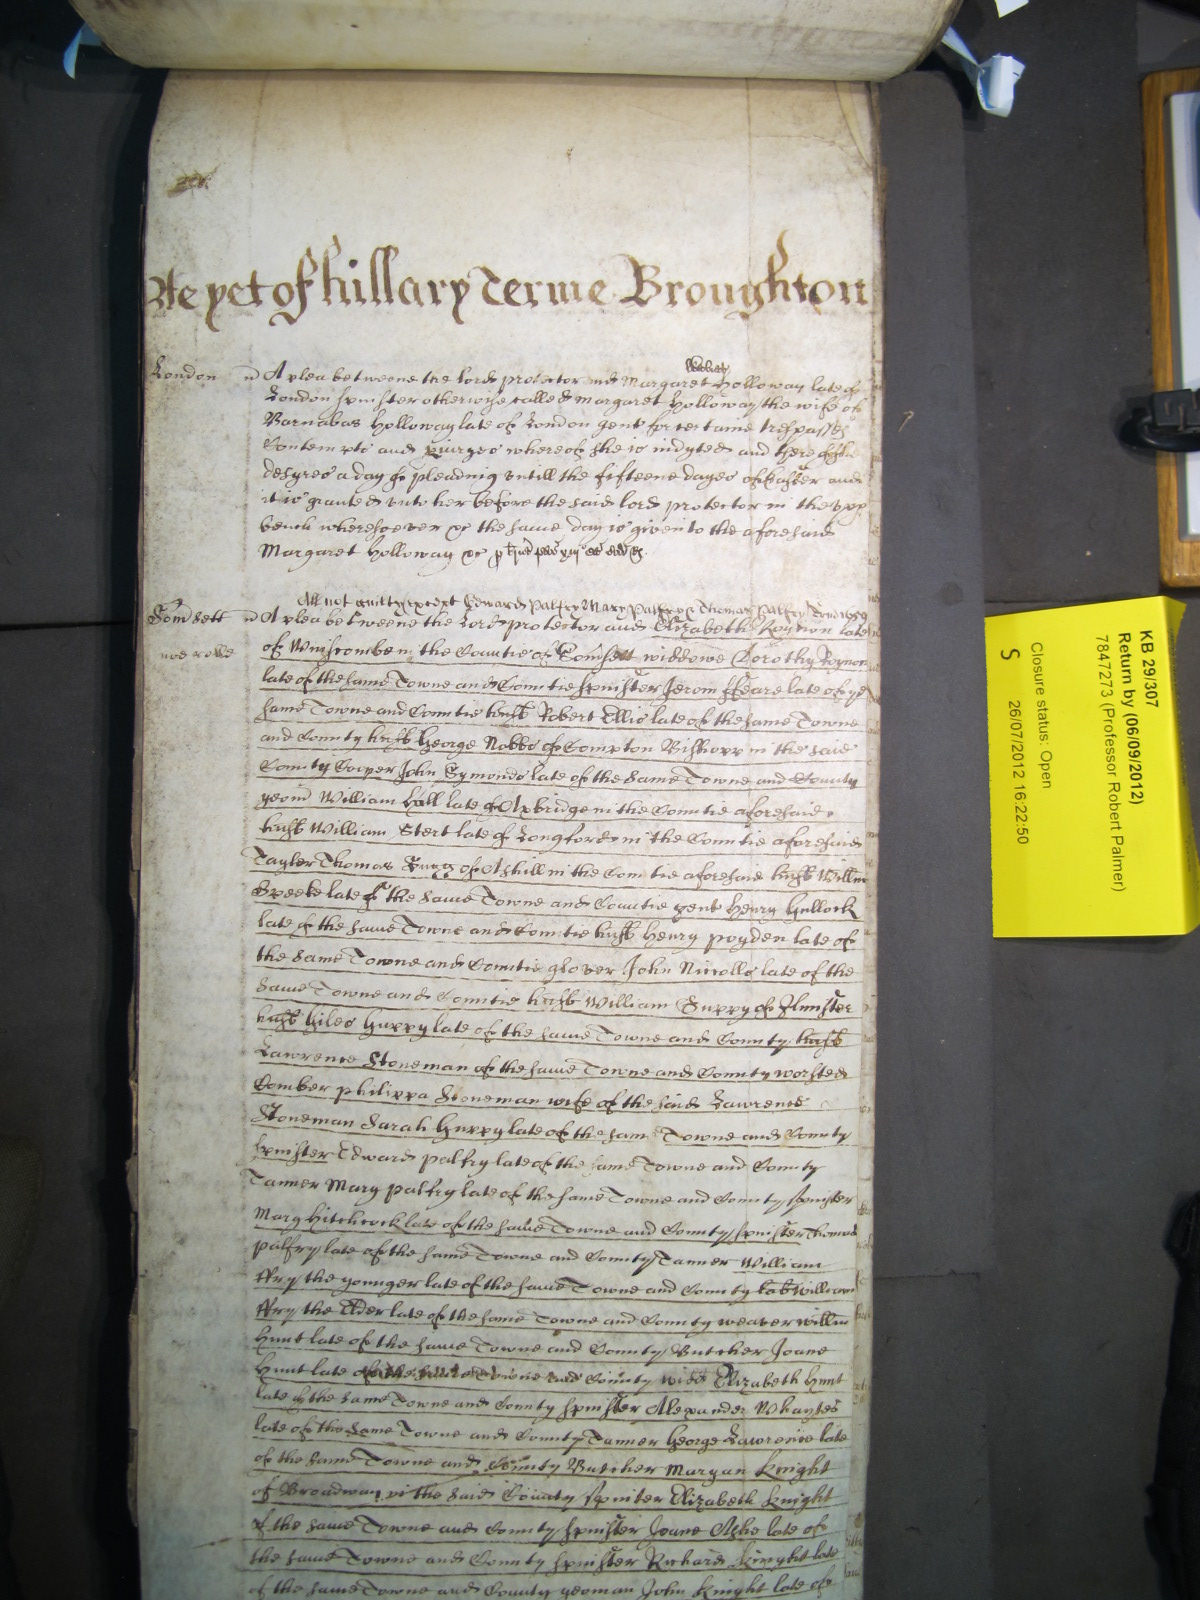 As yet of hillary Terme Broughton
London A plea betweene the Lord protector and Margaret Holloway late of
London spinster otherwise called Margaret Holloway the wife of
Barnabas Holloway late of London gent for certaine trespasses
Contempts and whereof she is indyted and thereof she
desyres a day of pleading untill the fifteene dayes of Easter and
it is granted unto her before the said lord protector in the upp
bench wheresoever &c the same day is given to the aforesaid
Margaret Holloway &c
All not guilty except Edward Palfry Mary Palfry & Thomas Palfry
Somersett A plea betweene the Lord protector and Elizabeth Roynon late
of Winscombe in the Countie of Somersett widdowe Dorothy Roynon
late of the same Towne and Countie spinster Jerom ffeare late of ye
same Towne and Countie husb Robert Ellis late of the same Towne
and County husb George Nobbs of Compton Bishopp in the said
County Cooper John Symonds late of the same Towne and County
yeom William Hall late of Axbridge in the Countie aforesaid
husb William Stert late of Longford in the Countie aforesaid
Tayler Thomas of Ashill in the Countie aforesaid husb Willm
Speeke late of the same Towne and Countie gent Henry Gullock
late of the same Towne and Countie husb Henry poyden late of
the same Towne and Countie glover John Niccolls late of the
same Towne and Countie husb William Guppy of Ilmister
husb Giles Guppy late of the same Towne and County husb
Lawrence Stoneman of the same Towne and County worsted
Comber philippa Stoneman wife of the said Lawrence
Stoneman Sarah Guppy late of the same Towne and County
spinster Edward palfry late of the same Towne and County
Tanner Mary palfry late of the same Towne and County spinster
Mary Hitchcock late of the same Towne and County spinster Thomas
palfry late of the same Towne and County Tanner William
ffry the younger late of the same Towne and County William
ffry the Elder late of the same Towne and County weaver willm
Hunt late of the same Towne and County Butcher Joane
Hunt late of the same Towne and County wid Elizabeth Hunt
late of the same Towne and County spinster Alexander
late of the same Towne and County Tanner George Lawrence late
of the same Towne and County Butcher Margan Knight
of Broadway in the said County spinster Elizabeth Knight
of the same Towne and County spinster Joane Ashe late of
the same Towne and County spinster Richard Knight late
of the same Towne and County yeoman John Knight late of
KB 29/307
Return by (06/09/2012)
7847273 (Professor Robert Palmer)
Closure status: Open
S 26/07/2012 16:22:50